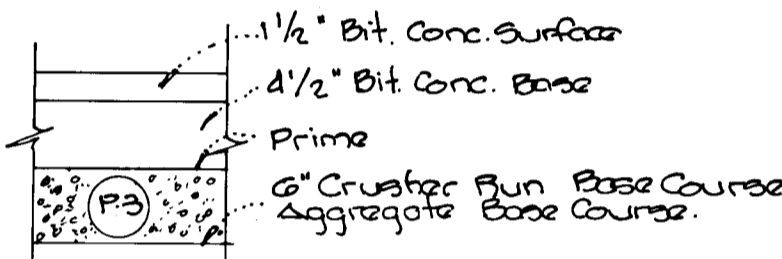 1 1/2" Bit. Conc. Surface
4 1/2" Bit. Conc. Base
Prime
6" Crusher Run Base Course
Aggregate Base Course.
P.3